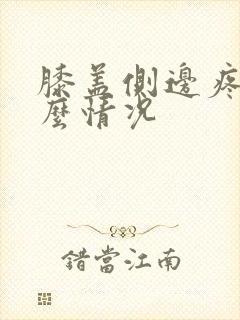 膝盖側邊疼
麼情况
錯當江南